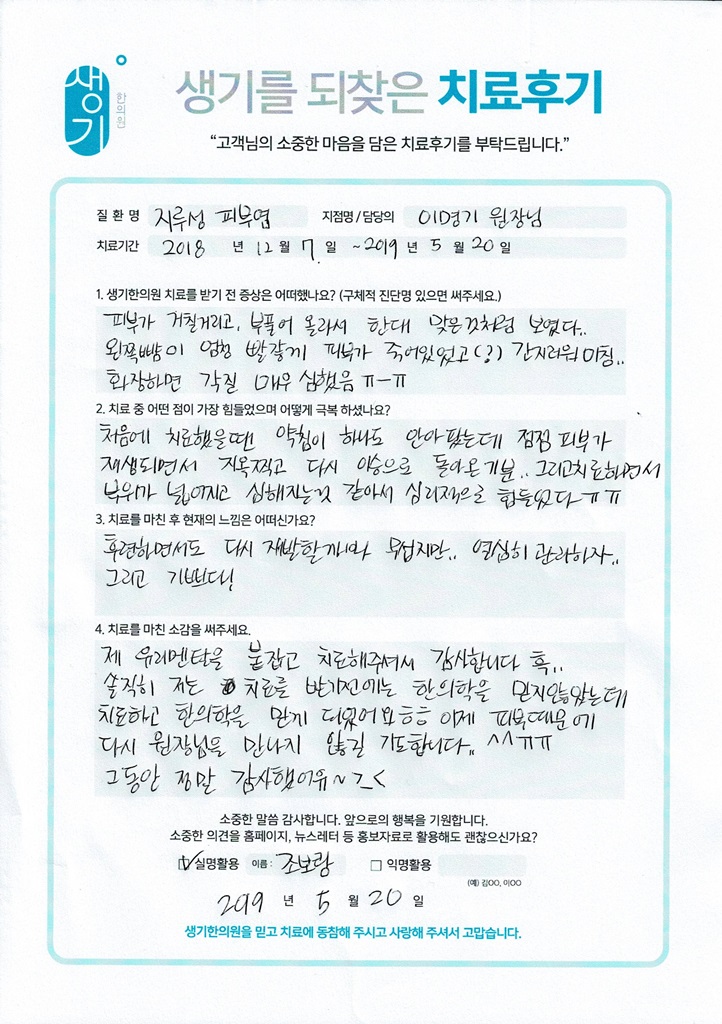 생기
한의원
생기를 되찾은 치료후기
“고객님의 소중한 마음을 담은 치료후기를 부탁드립니다.”
질 환 명 지루성 피부염 지점명 / 담당의 이경기 원장님
치료기간 2018 년 12 월 7 일 ~ 2019 년 5 월 20 일
1. 생기한의원 치료를 받기 전 증상은 어떠했나요? (구체적 진단명 있으면 써주세요.)
피부가 거칠거리고, 부풀어 올라서 한대 맞은것처럼 보였다..
왼쪽뺨이 엄청 빨갛게 피부가 죽어있었고(?) 간지러워 미침..
화장하면 각질 매우 심했음 ㅠ-ㅠ
2. 치료 중 어떤 점이 가장 힘들었으며 어떻게 극복 하셨나요?
처음에 치료했을땐 약침이 하나도 안아팠는데 점점 피부가
재생되면서 지옥찍고 다시 이승으로 돌아온기분.. 그리고치료하면서
부위가 넓어지고 심해지는것 같아서 심리적으로 힘들었다ㅠㅠ
3. 치료를 마친 후 현재의 느낌은 어떠신가요?
후련하면서도 다시 재발할까봐 무섭지만.. 열심히 관리하자..
그리고 기쁘다!
4. 치료를 마친 소감을 써주세요.
제 유리멘탈을 붙잡고 치료해주셔서 감사합니다 흑..
솔직히 저는 치료를 받기전에는 한의학을 믿지않았는데
치료하고 한의학을 믿게 되었어요ㅎㅎ 이제 피부때문에
다시 원장님을 만나지 않길 기도합니다.. ^^ㅠㅠ
그동안 정말 감사했어유~ >_<
소중한 말씀 감사합니다. 앞으로의 행복을 기원합니다.
소중한 의견을 홈페이지, 뉴스레터 등 홍보자료로 활용해도 괜찮으신가요?
☑ 실명활용 이름 : 조보람 □ 익명활용
(예) 김OO, 이OO
2019 년 5 월 20 일
생기한의원을 믿고 치료에 동참해 주시고 사랑해 주셔서 고맙습니다.